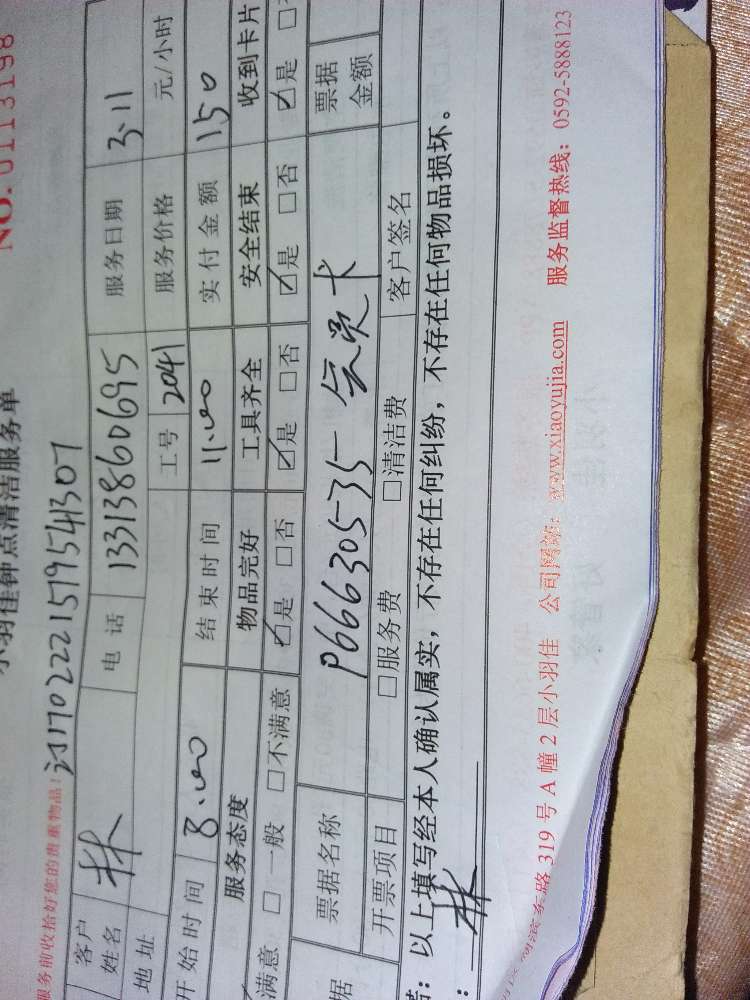 NO.0113198
小羽佳钟点清洁服务单
服务前收拾好您的贵重物品！ 订170222215195541307
客户姓名 林 电话 13313860695 服务日期 3.11
地址 工号 2041 服务价格 元/小时
开始时间 8.00 结束时间 11.00 实付金额 150
服务态度 物品完好 工具齐全 安全结束 收到卡片
满意 □一般 □不满意 ☑是 □否 ☑是 □否 ☑是 □否 ☑是 □
据 票据名称 P666305735 会员卡 票据金额
开票项目 □服务费 □清洁费 客户签名
：以上填写经本人确认属实，不存在任何纠纷，不存在任何物品损坏。
：林
路 319 号 A 幢 2 层小羽佳 公司网站：www.xiaoyujia.com 服务监督热线：0592-5888123